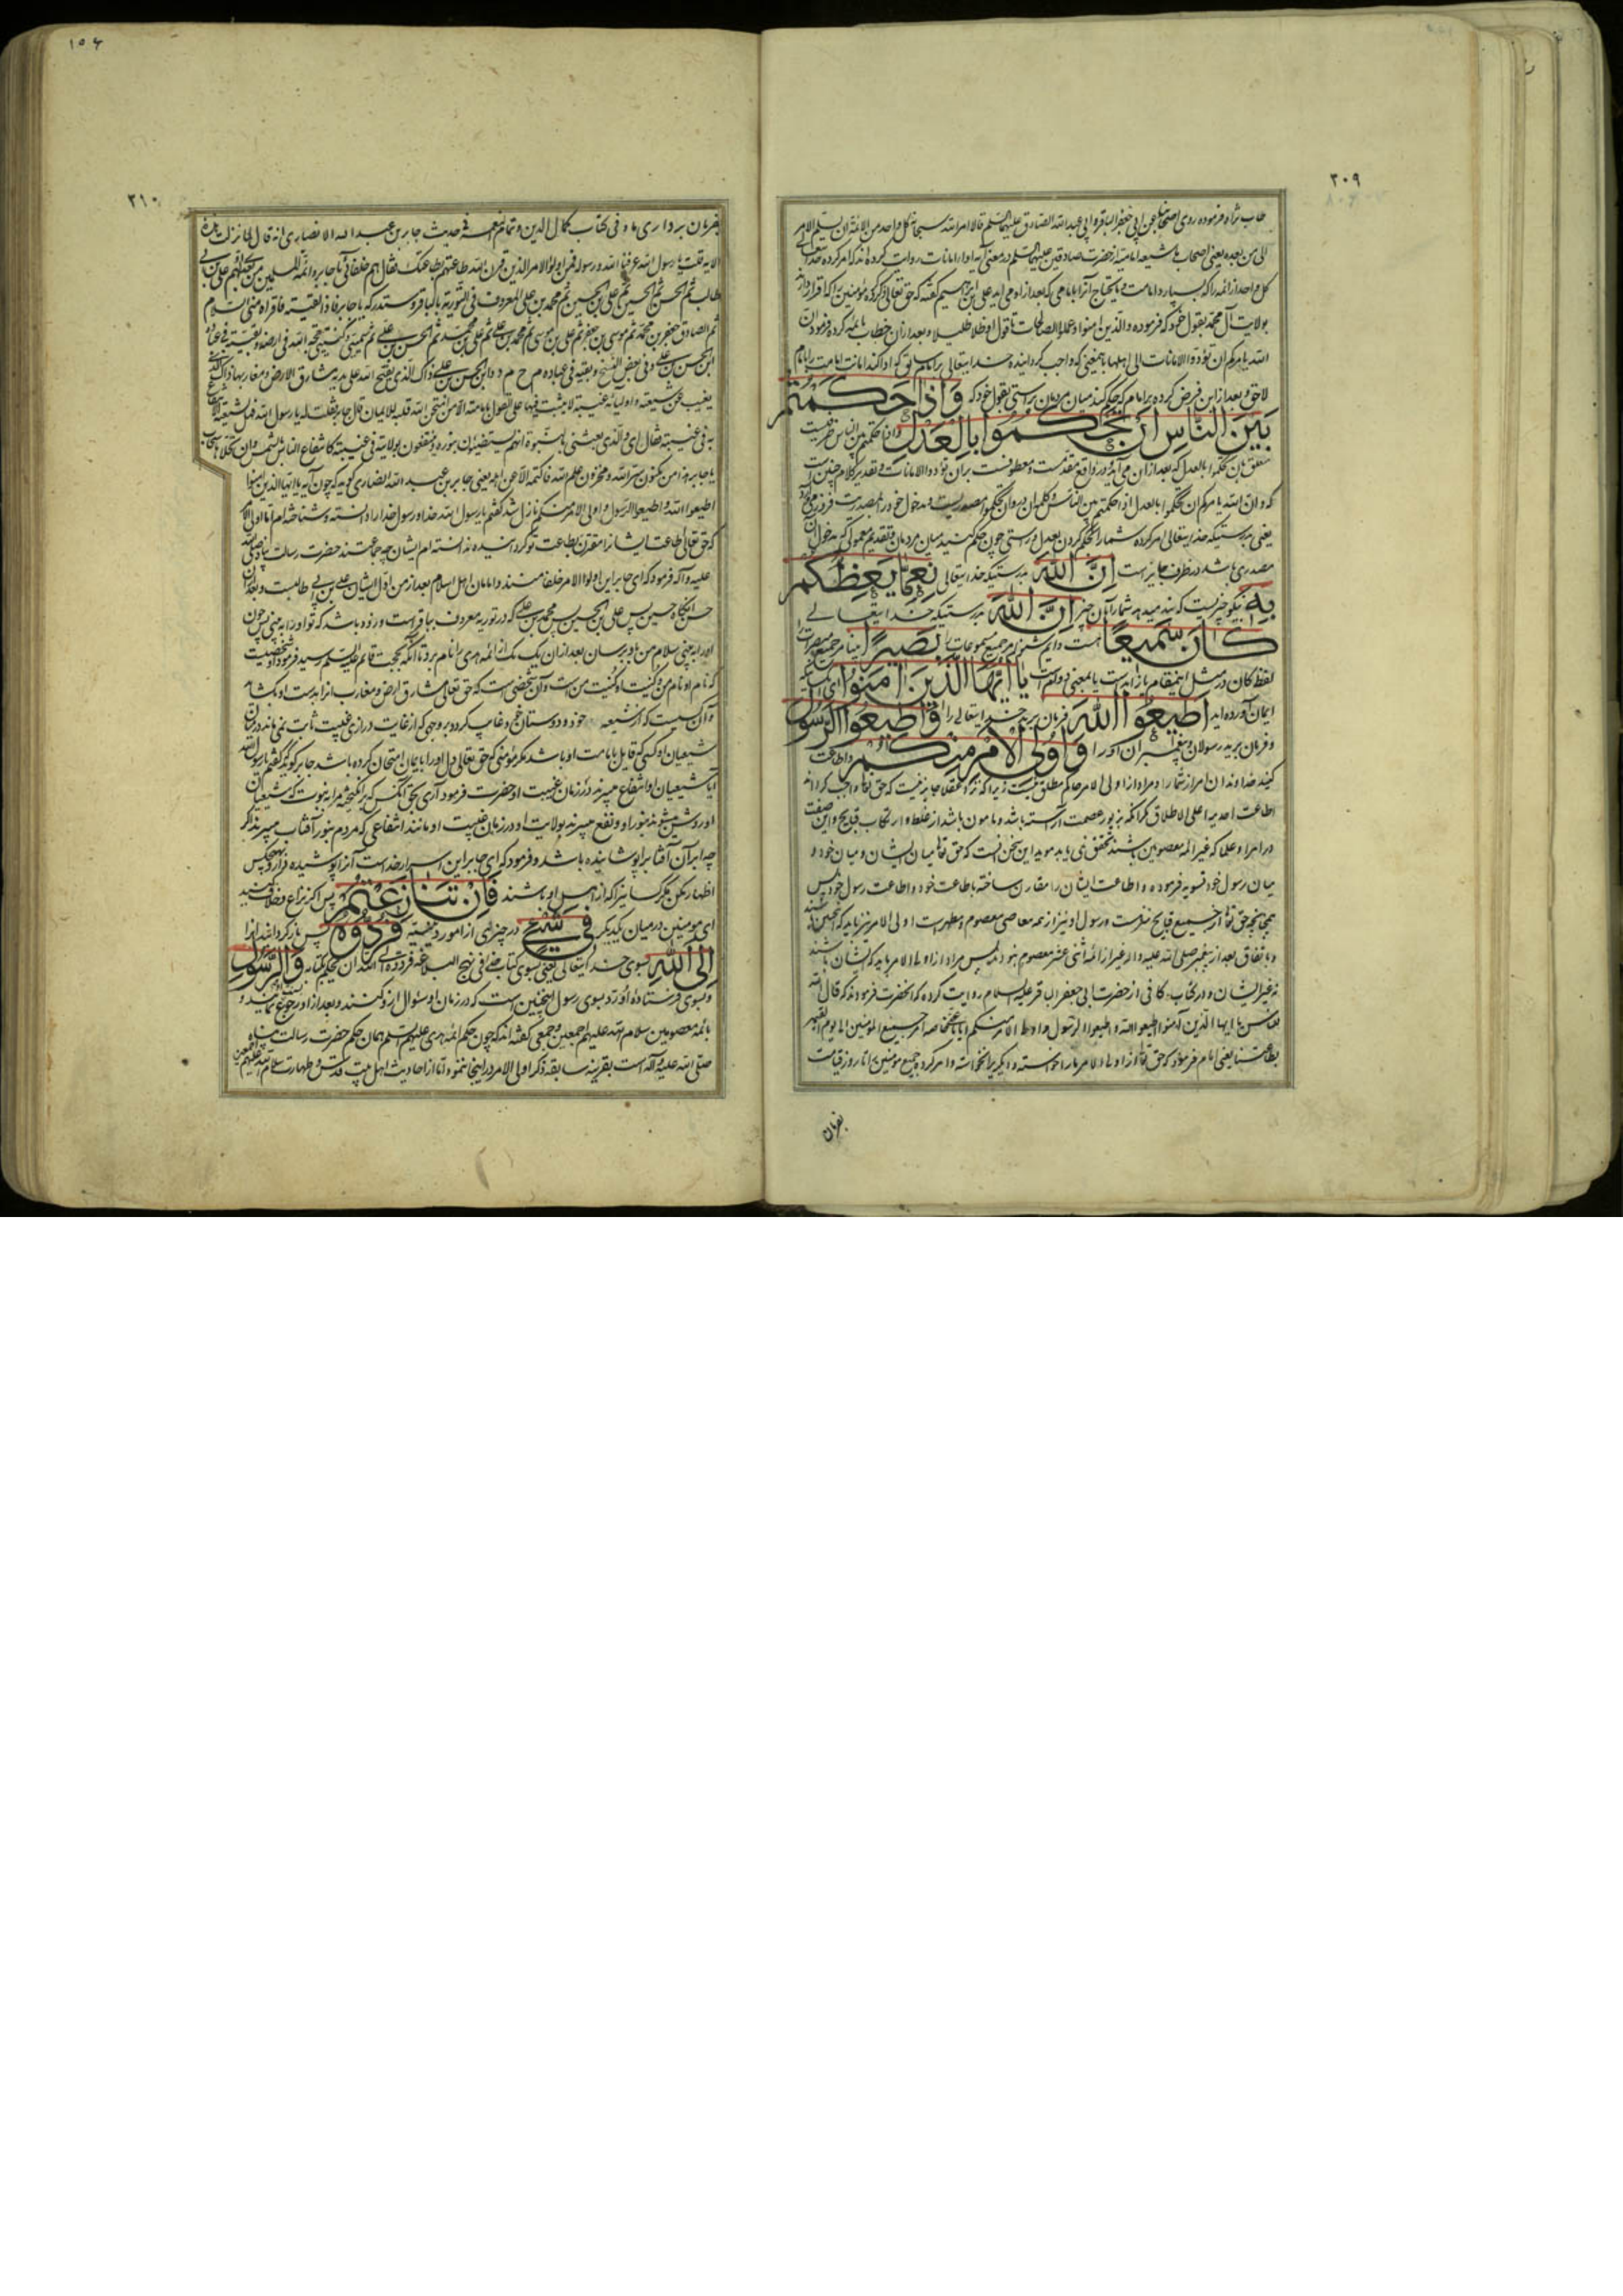 ۲۰۹
الی من بعده یعنی اصحاب ما شیعه امامیه از حضرت صادقین علیهما السلم در معنی آیه ادا امانات روایت کرده اند که امر کرده خدایتعالی
بولایت آل محمد بقول خود که فرموده والذین امنوا وعملوا الصالحات تا قول او ظلا ظلیلا و بعد ازان خطاب بائمه کرده فرمود ان
الله یامرکم ان تؤدوا الامانات الی اهلها باینمعنی که واجب گردانیده خدایتعالی بر امام که ادا کند امانات امامت را بامام
لاحق و بعد از این فرض کرده بر امام که حکم کند میان مردمان براستی بقول خود که وَاِذَا حَكَمْتُمْ
بَيْنَ النَّاسِ اَنْ تَحْكُمُوا بِالْعَدْلِ
که و ان الله یامرکم ان تحکموا بالعدل اذا حکمتم بین الناس
یعنی بدرستیکه خدایتعالی امر کرده شما را بحکم کردن بعدل و راستی چون حکم کنید میان مردمان
مصدری باشد در ظرف جایز است اِنَّ اللهَ بدرستیکه خدایتعالی نِعِمَّا يَعِظُكُمْ
بِهِ نیکو چیزیست که پند میدهد شما را بآن چیز اِنَّ اللهَ بدرستیکه خدایتعالی
كَانَ سَمِيعًا هست دایم شنوا مر جمیع مسموعات را بَصِيرًا بینا مر جمیع مبصرات را
لفظ کان در مثل اینمقام یا زایدست یا بمعنی دوام است يَا اَيُّهَا الَّذِينَ اٰمَنُوا ای کسانیکه
ایمان آورده اید اَطِيعُوا اللهَ فرمان برید خدایتعالی را وَاَطِيعُوا الرَّسُولَ
و فرمان برید رسولان و پیغمبران او را وَاُولِي الْاَمْرِ مِنْكُمْ و اطاعت
کنید خداوندان امر از شما را و مراد از اولی الامر حاکم مطلق نیست زیرا که نزد عقلا جایز نیست که حق تعالی واجب گرداند
اطاعت احدیرا علی الاطلاق مگر آنکه بزیور عصمت آراسته باشد و مامون باشد از غلط و ارتکاب قبایح و این صفت
در امرا و علما که غیر ائمه معصومین باشند تحقق نمی یابد موید این سخن آنست که حق تعالی میان ایشان و میان خود و
میان رسول خود تسویه فرموده و اطاعت ایشان را مقارن ساخته باطاعت خود و اطاعت رسول خود پس
و باتفاق بعد از پیغمبر صلی الله علیه و اله غیر از ائمه اثنی عشر معصوم نبوده اند پس مراد از اولی الامر باید که ایشان باشند
نه غیر ایشان و در کتاب کافی از حضرت ابی جعفر الباقر علیه السلام روایت کرده که انحضرت فرمودند که قال الله
للناس یا ایها الذین آمنوا اطیعوا الله و اطیعوا الرسول و اولی الامر منکم ایانا عنی خاصة امر جمیع المؤمنین الی یوم القیمة
بطاعتنا یعنی امام فرمود که حق تعالی از اولی الامر ما را خواسته و دیگری را نخواسته و امر کرده جمیع مؤمنین را تا روز قیامت
بفرمان
۱۵۶
۲۱۰
بفرمان برداری ما و فی کتاب کمال الدین و تمام النعمة فی حدیث جابر بن عبد الله الانصاری انه قال لما نزلت هذه
الایه قلت یا رسول الله عرفنا الله و رسوله فمن اولوا الامر الذین قرن الله طاعتهم بطاعتک فقال هم خلفائی یا جابر و ائمة المسلمین من بعدی اولهم علی بن ابی
طالب ثم الحسن ثم الحسین ثم علی بن الحسین ثم محمد بن علی المعروف فی التوریة بالباقر و ستدرکه یا جابر فاذا لقیته فاقراه منی السلام
ثم الصادق جعفر بن محمد ثم موسی بن جعفر ثم علی بن موسی ثم محمد بن علی ثم علی بن محمد ثم الحسن بن علی ثم سمیی و کنیی حجة الله فی ارضه و بقیته فی عباده
یغیب عن شیعته و اولیائه غیبة لا یثبت فیها علی القول بامامته الا من امتحن الله قلبه للایمان قال جابر فقلت له یا رسول الله فهل لشیعته الانتفاع
به فی غیبته فقال ای و الذی بعثنی بالنبوة انهم یستضیئون بنوره و ینتفعون بولایته فی غیبته کانتفاع الناس بالشمس و ان تجللها سحاب
یا جابر هذا من مکنون سر الله و مخزون علم الله فاکتمه الا عن اهله یعنی جابر بن عبد الله انصاری گوید که چون آیه یا ایها الذین امنوا
اطیعوا الله و اطیعوا الرسول و اولی الامر منکم نازل شد گفتم یا رسول الله خدا و رسول خدا را دانسته و شناخته ام اما اولی الامر
که حق تعالی طاعت ایشانرا مقترن بطاعت تو گردانیده ندانسته ام ایشان چه جماعتند حضرت رسالت پناه صلی الله
علیه و آله فرمود که ای جابر این اولوا الامر خلفا منند و امامان اهل اسلام بعد از من اول ایشان علی بن ابی طالبست و بعد از ان
حسن انگاه حسین پس علی بن الحسین پس محمد بن علی که در توریه معروف بباقر است و زود باشد که تو او را به بینی پس چون
او را به بینی سلام من باو برسان بعد از ان یک یک از ائمه هدی را نام برد تا آنکه بحجت قائم علیه السلم رسید فرمود او شخصیست
که نام او نام من و کنیت او کنیت من است و آن شخصی است که حق تعالی مشارق ارض و مغارب انرا بدست او بکشاید
و آن کسیست که از شیعه خود و دوستان خود غایب گردد بروجهی که از غایت درازی غیبت ثابت نمی ماند در ان
شیعیان او کسی که قایل بامامت او باشد مگر مؤمنی که حق تعالی دل او را بایمان امتحان کرده باشد جابر گوید که گفتم یا رسول الله
آیا شیعیان او انتفاع میبرند در زمان غیبت او حضرت فرمود آری بحق آنکس که برانگیخته مرا به نبوت که شیعیان
او روشن میشوند بنور او و نفع میبرند بولایت او در زمان غیبت او مانند انتفاعی که مردم بنور آفتاب میبرند اگر
چه ابر آن آفتابرا پوشانیده باشد و فرمود که ای جابر این اسرار خداست آنرا پوشیده دار و بهیچکس
اظهار مکن مگر کسانیرا که از اهل او باشند فَاِنْ تَنَازَعْتُمْ پس اگر نزاع و خلاف کنید
ای مؤمنین در میان یکدیگر فِي شَيْءٍ در چیزی از امور دینیه فَرُدُّوهُ پس باز گردانید انرا
اِلَى اللهِ بسوی خدایتعالی یعنی بسوی کتاب وَالرَّسُولِ
و بسوی فرستاده او و رد بسوی رسول اینچنین است که در زمان او سئوال ازو کنند و بعد از او رجوع نمایند
بائمه معصومین سلام الله علیهم اجمعین و جمعی گفته اند که چون حکم ائمه هدی علیهم السلم همان حکم حضرت رسالت پناه
صلی الله علیه و آله است بقرینه سابقه ذکر اولی الامر در اینجا ننموده اما از احادیث اهل بیت